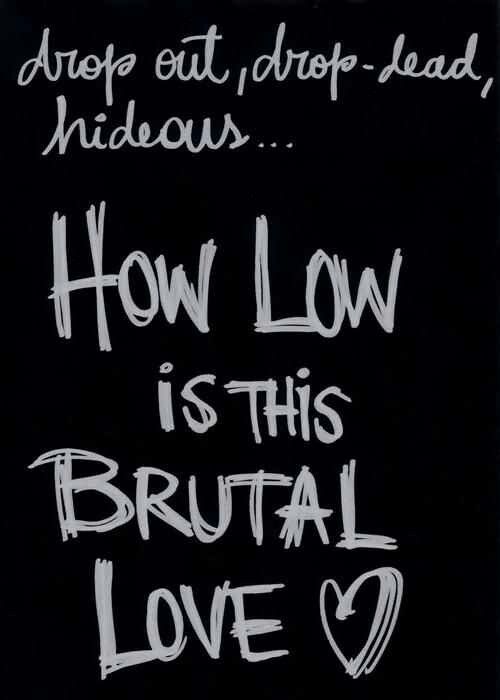 drop out, drop-dead,
hideous...
HOW LOW
is THis
BRUTAL
LOVE ♡